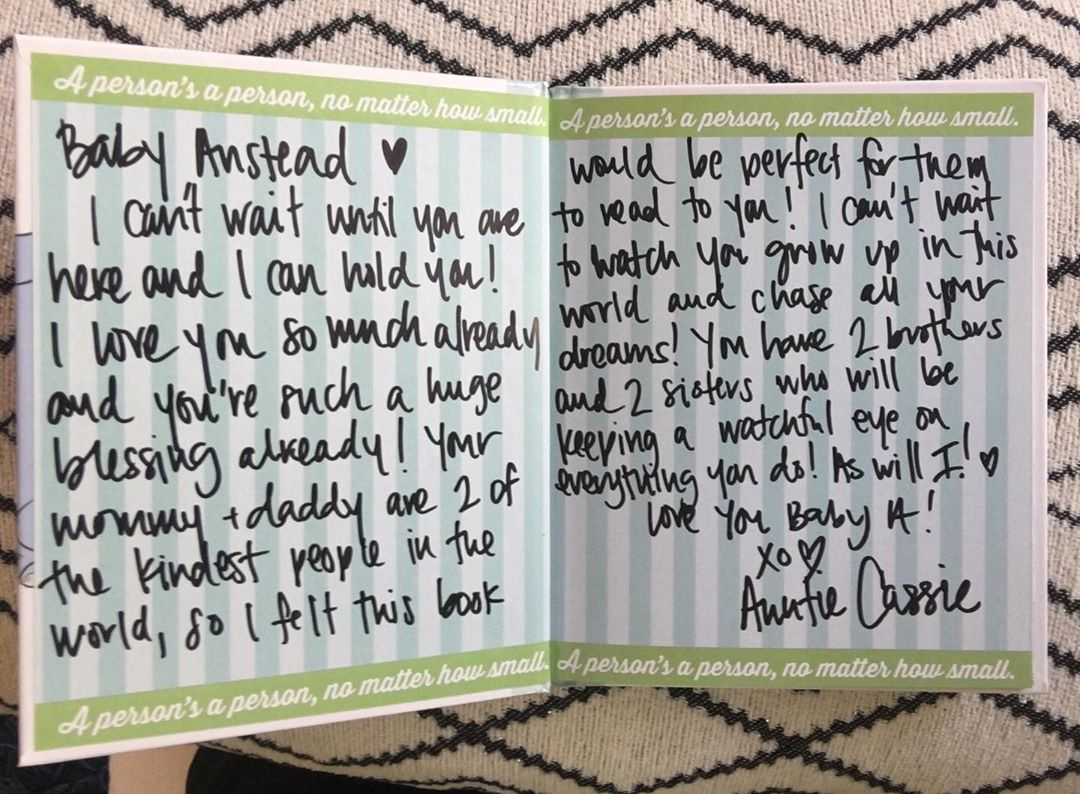 A person's a person, no matter how small.
Baby Anstead ♥
I can't wait until you are
here and I can hold you!
I love you so much already
and you're such a huge
blessing already! Your
mommy + daddy are 2 of
the kindest people in the
world, so I felt this book
A person's a person, no matter how small.
A person's a person, no matter how small.
would be perfect for them
to read to you! I can't wait
to watch you grow up in this
world and chase all your
dreams! You have 2 brothers
and 2 sisters who will be
keeping a watchful eye on
everything you do! As will I! ♡
Love You Baby A!
XO ♡
Auntie Cassie
A person's a person, no matter how small.